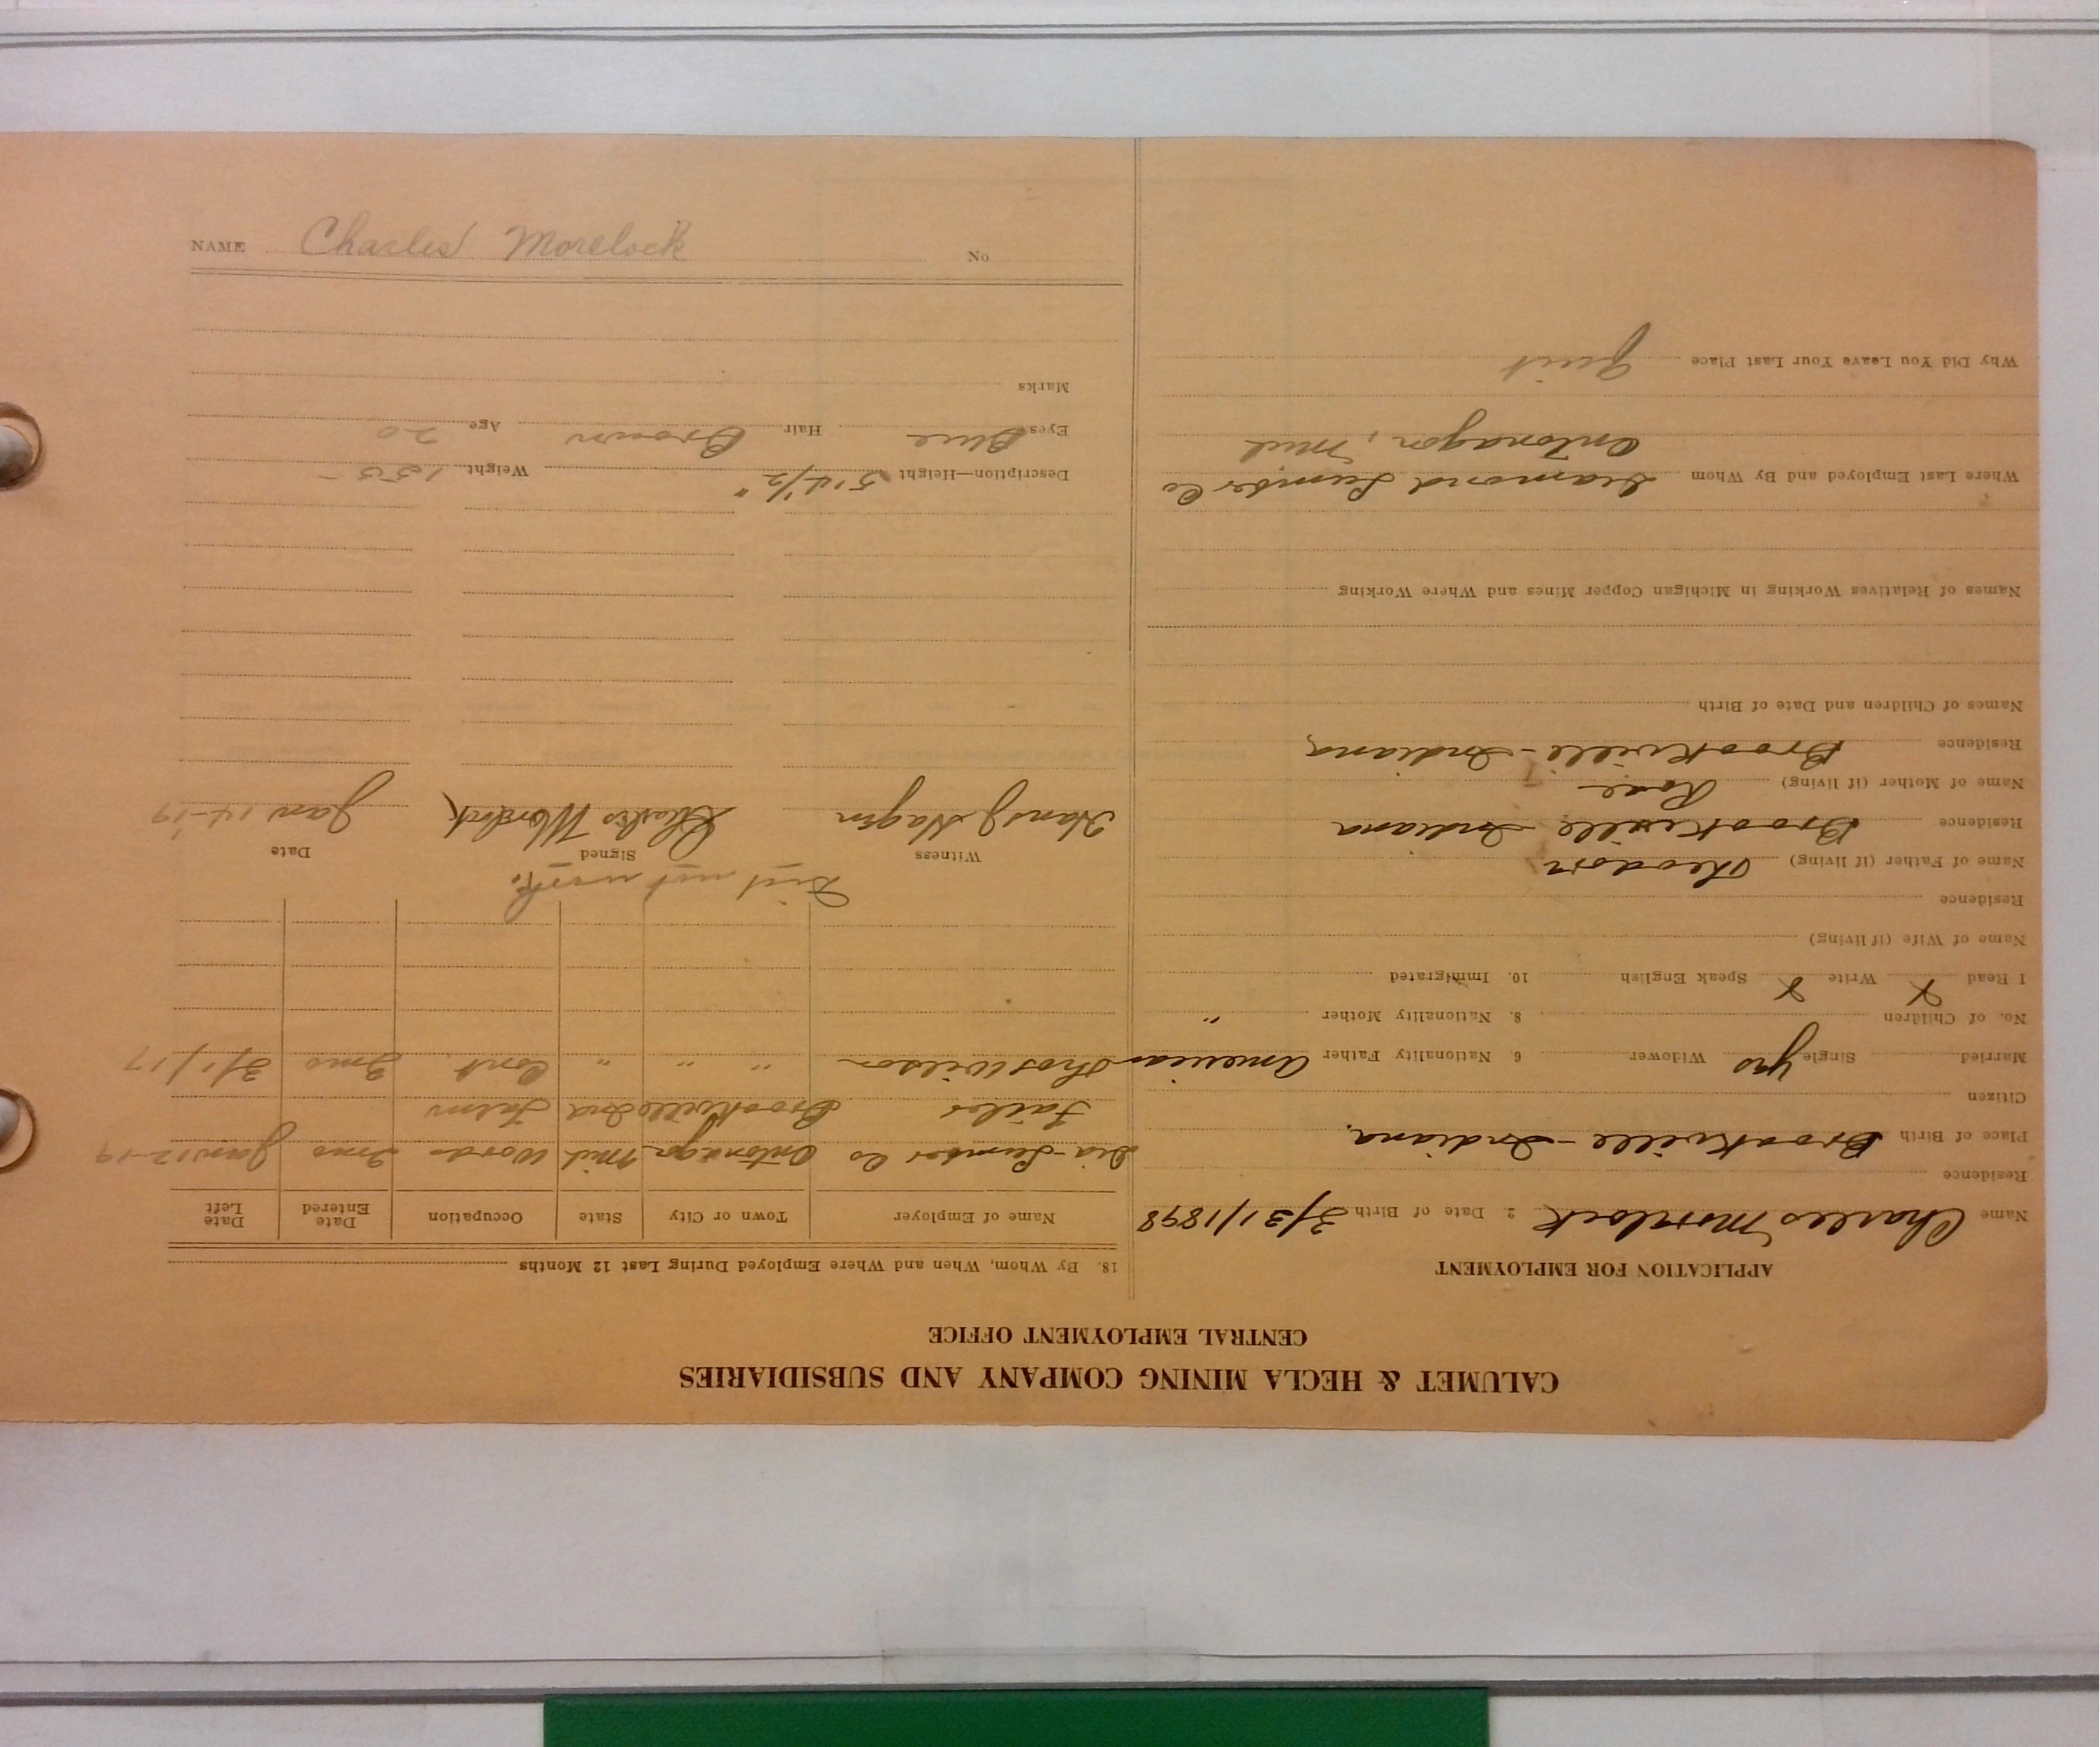 CALUMET & HECLA MINING COMPANY AND SUBSIDIARIES
CENTRAL EMPLOYMENT OFFICE
APPLICATION FOR EMPLOYMENT
Name Charles Morelock 2. Date of Birth 3/31/1898
Residence
Place of Birth Brookville - Indiana.
Citizen
Married Single yes Widower 6. Nationality Father American
No. of Children 8. Nationality Mother "
I Read X Write X Speak English 10. Immigrated
Name of Wife (if living)
Residence
Name of Father (if living) Theodore
Residence Brookville Indiana
Name of Mother (if living) Rose
Residence Brookville - Indiana
Names of Children and Date of Birth
Names of Relatives Working in Michigan Copper Mines and Where Working
Where Last Employed and By Whom Diamond Lumber Co
Ontonagon, Mich
Why Did You Leave Your Last Place Quit
18. By Whom, When and Where Employed During Last 12 Months
Name of Employer Town or City State Occupation Date Entered Date Left
Dia - Lumber Co Ontonagon Mich Woods 2mo Jan 12-19
Brookville Ind Farm
Thos Wilson " " " Cont. 2mo 3/1/17
Did not work.
Witness Signed Date
Hans J Hagen Charles Morelock Jan 14-19
Description—Height 5' 4 1/2" Weight 155-
Eyes Blue Hair Brown Age 20
Marks
NAME Charles Morelock No